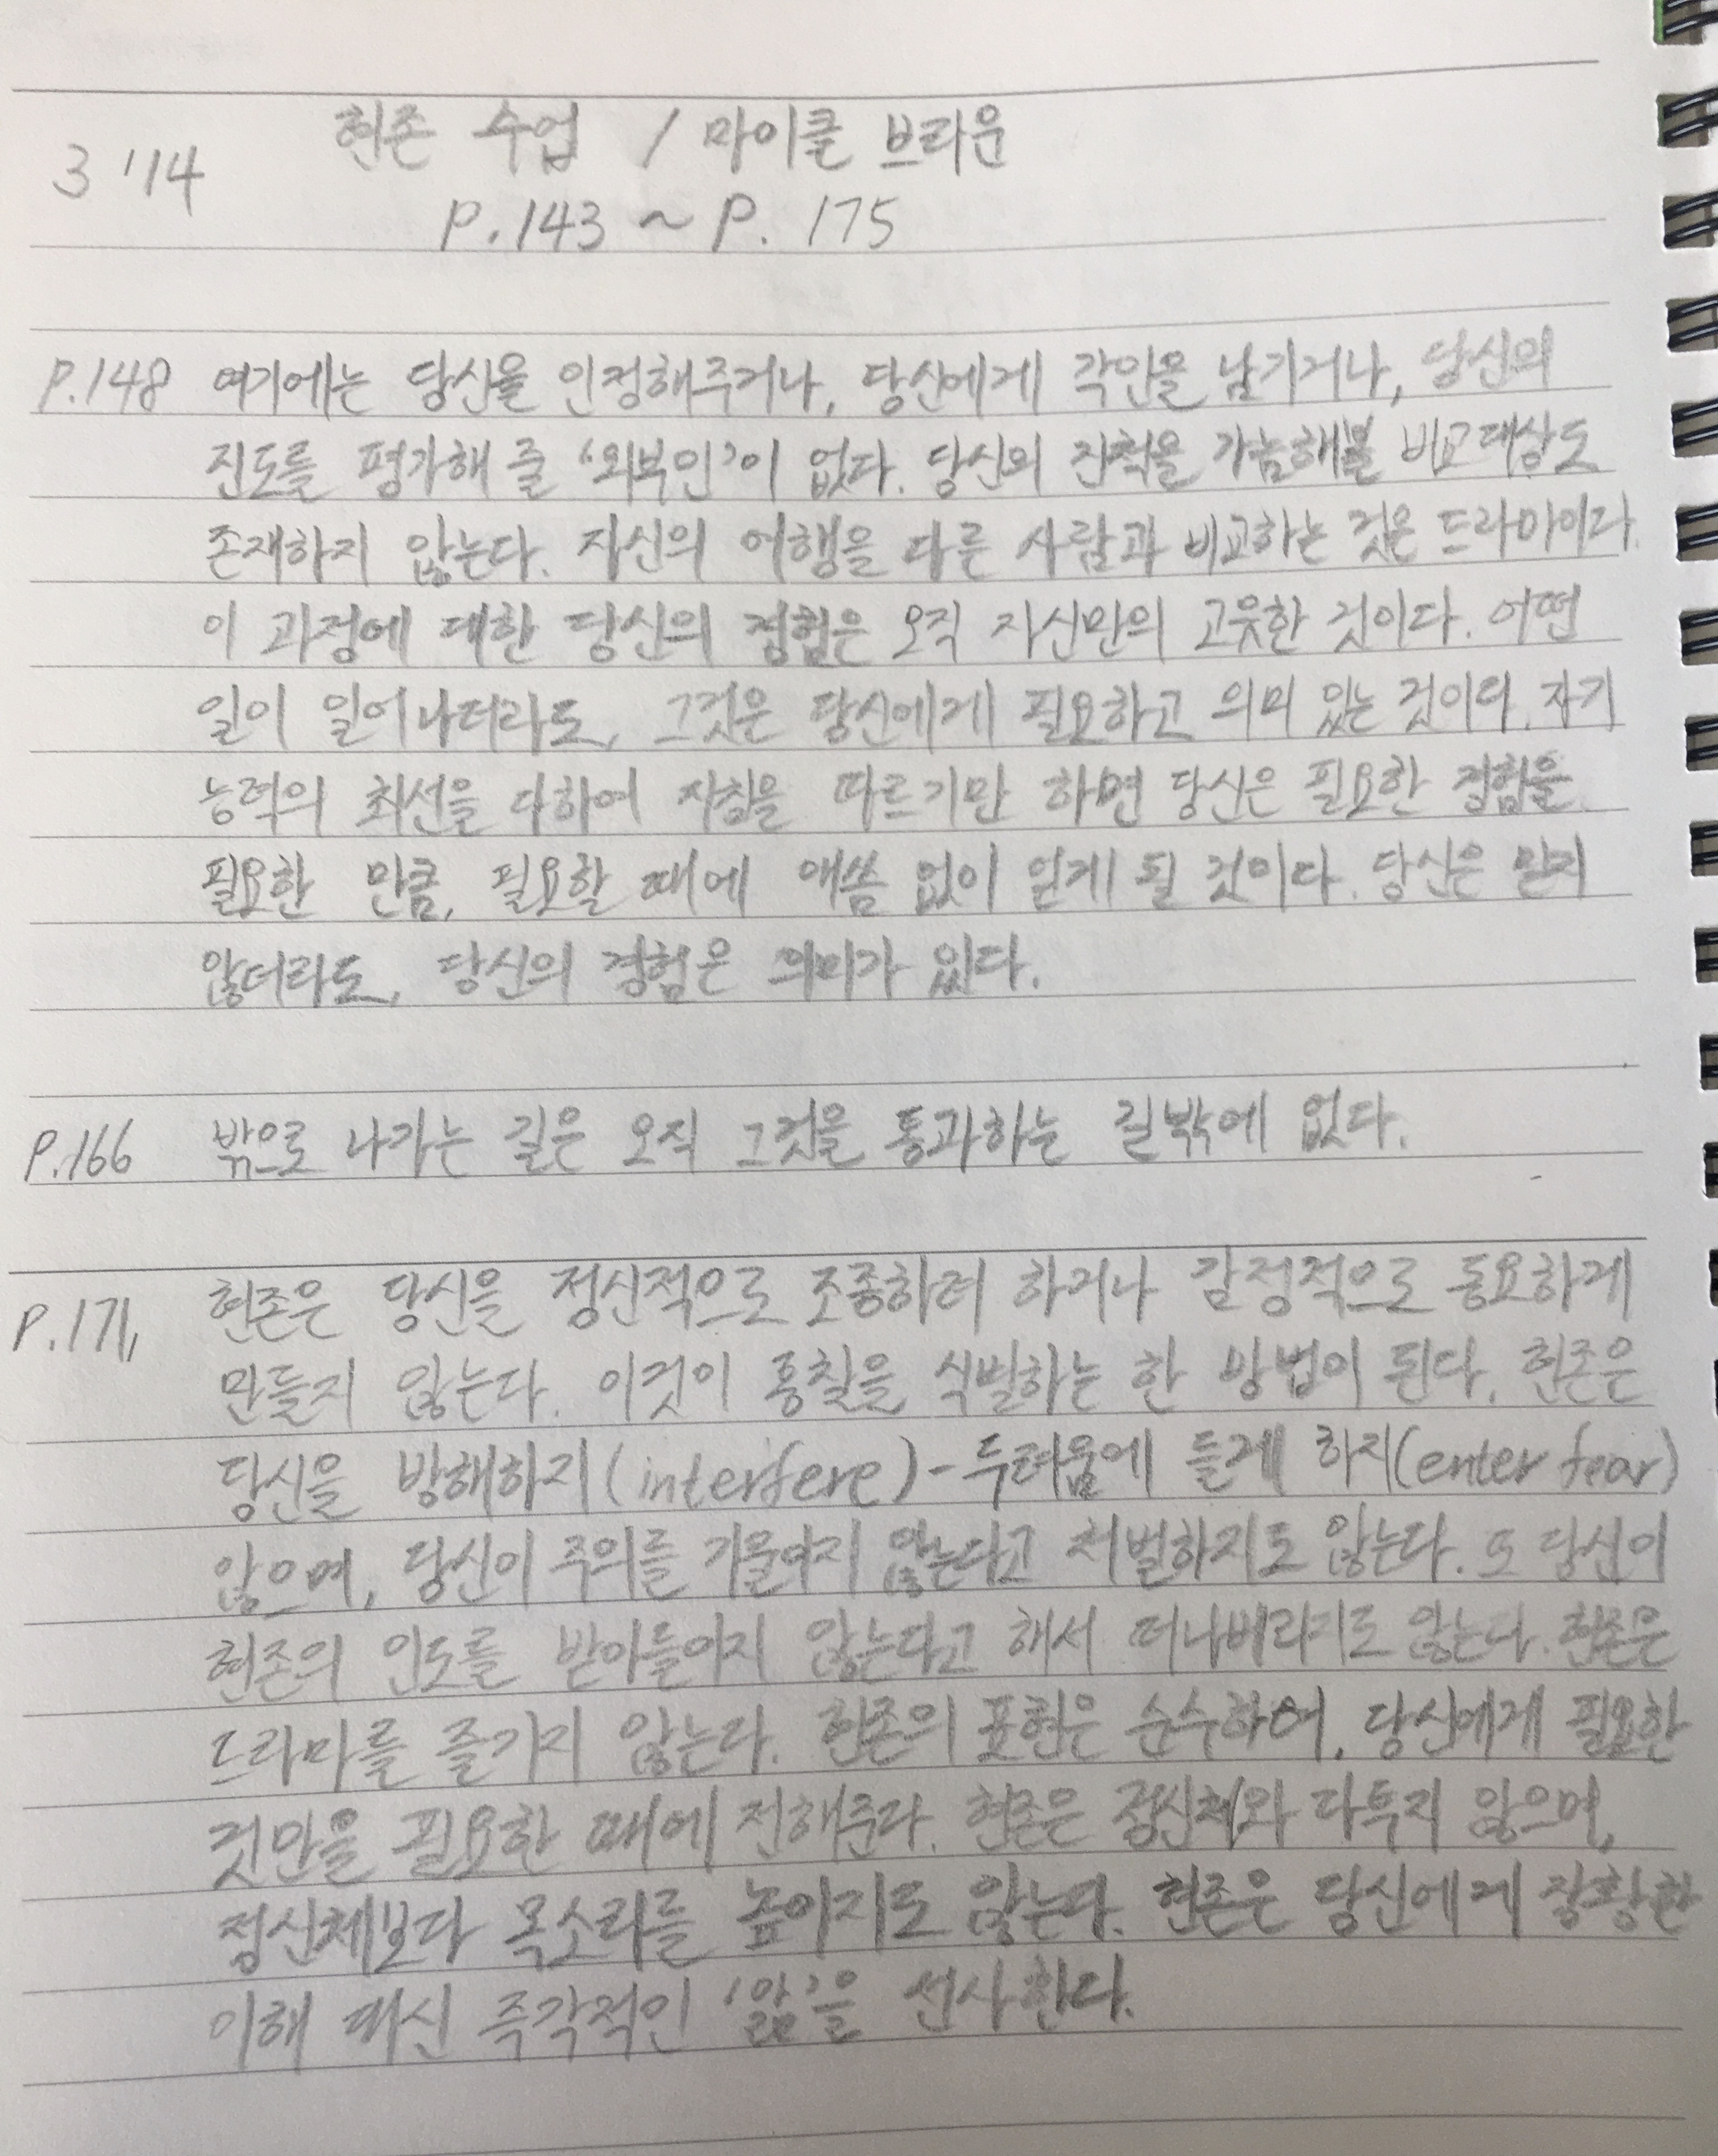 현존 수업 / 마이클 브라운
3 '14
P.143 ~ P. 175
P.148 여기에는 당신을 인정해주거나, 당신에게 각인을 남기거나, 당신의
진도를 평가해 줄 '외부인'이 없다. 당신의 진척을 가늠해볼 비교대상도
존재하지 않는다. 자신의 여행을 다른 사람과 비교하는 것은 드라마이다.
이 과정에 대한 당신의 경험은 오직 자신만의 고유한 것이다. 어떤
일이 일어나더라도, 그것은 당신에게 필요하고 의미 있는 것이다. 자기
능력의 최선을 다하여 지침을 따르기만 하면 당신은 필요한 경험을
필요한 만큼, 필요할 때에 애씀 없이 얻게 될 것이다. 당신은 믿지
않더라도, 당신의 경험은 의미가 있다.
P.166 밖으로 나가는 길은 오직 그것을 통과하는 길밖에 없다.
P.171, 현존은 당신을 정신적으로 조종하려 하거나 감정적으로 동요하게
만들지 않는다. 이것이 통찰을 식별하는 한 방법이 된다. 현존은
당신을 방해하지(interfere)-두려움에 들게 하지(enter fear)
않으며, 당신이 주의를 기울이지 않는다고 처벌하지도 않는다. 또 당신이
현존의 인도를 받아들이지 않는다고 해서 떠나버리지도 않는다. 현존은
드라마를 즐기지 않는다. 현존의 표현은 순수하여, 당신에게 필요한
것만을 필요한 때에 전해준다. 현존은 정신체와 다투지 않으며,
정신체보다 목소리를 높이지도 않는다. 현존은 당신에게 장황한
이해 대신 즉각적인 '앎'을 선사한다.